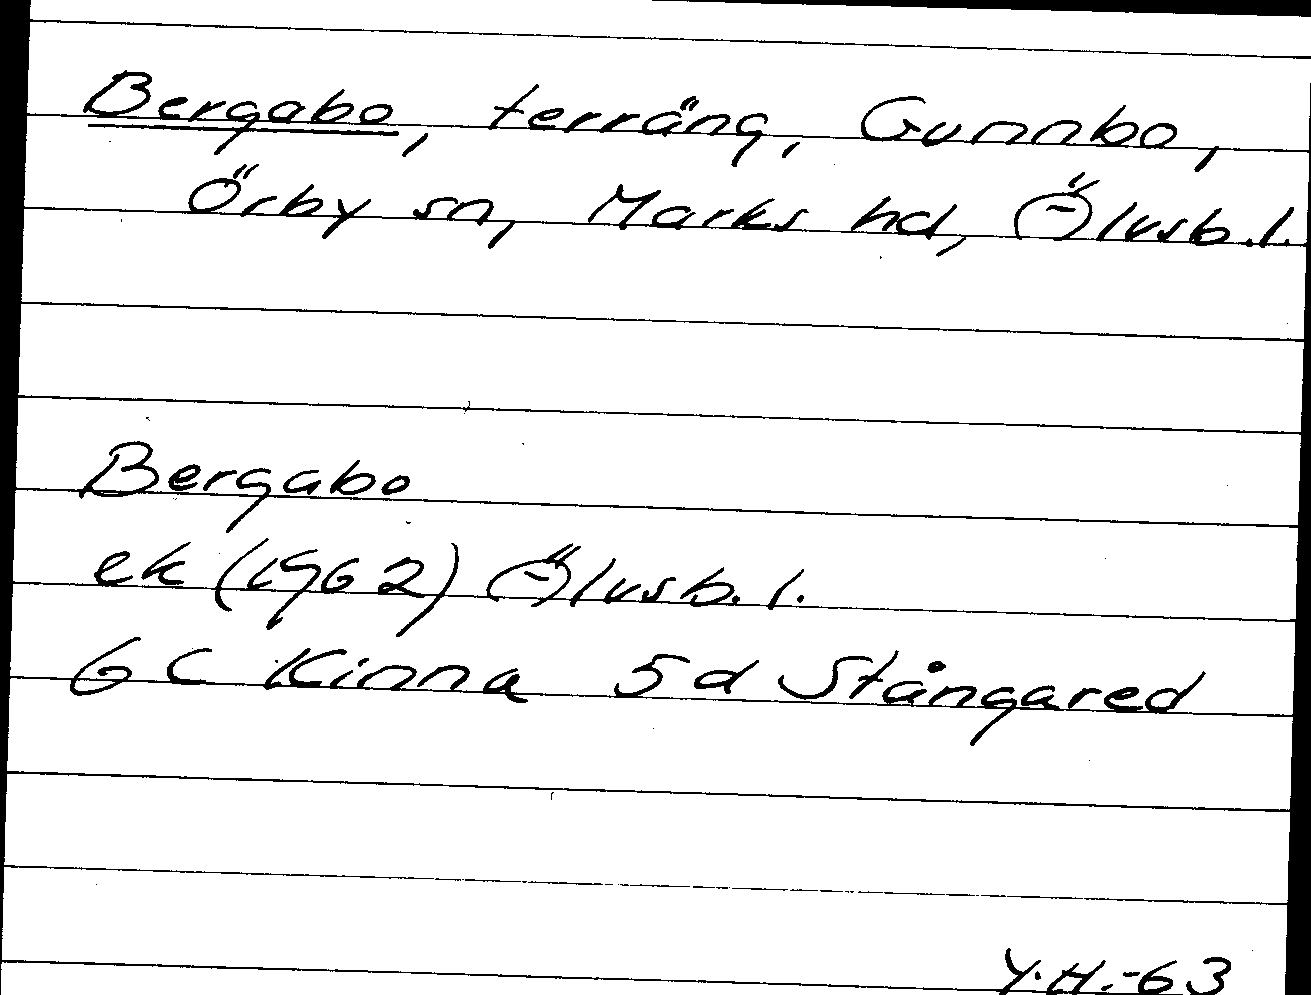 Bergabo, terräng, Gunnbo,
Örby sn, Marks hd, Älvsb.l.
Bergabo
ek (1962) Älvsb.l.
6 C Kinna 5d Stångared
Y.H.-63